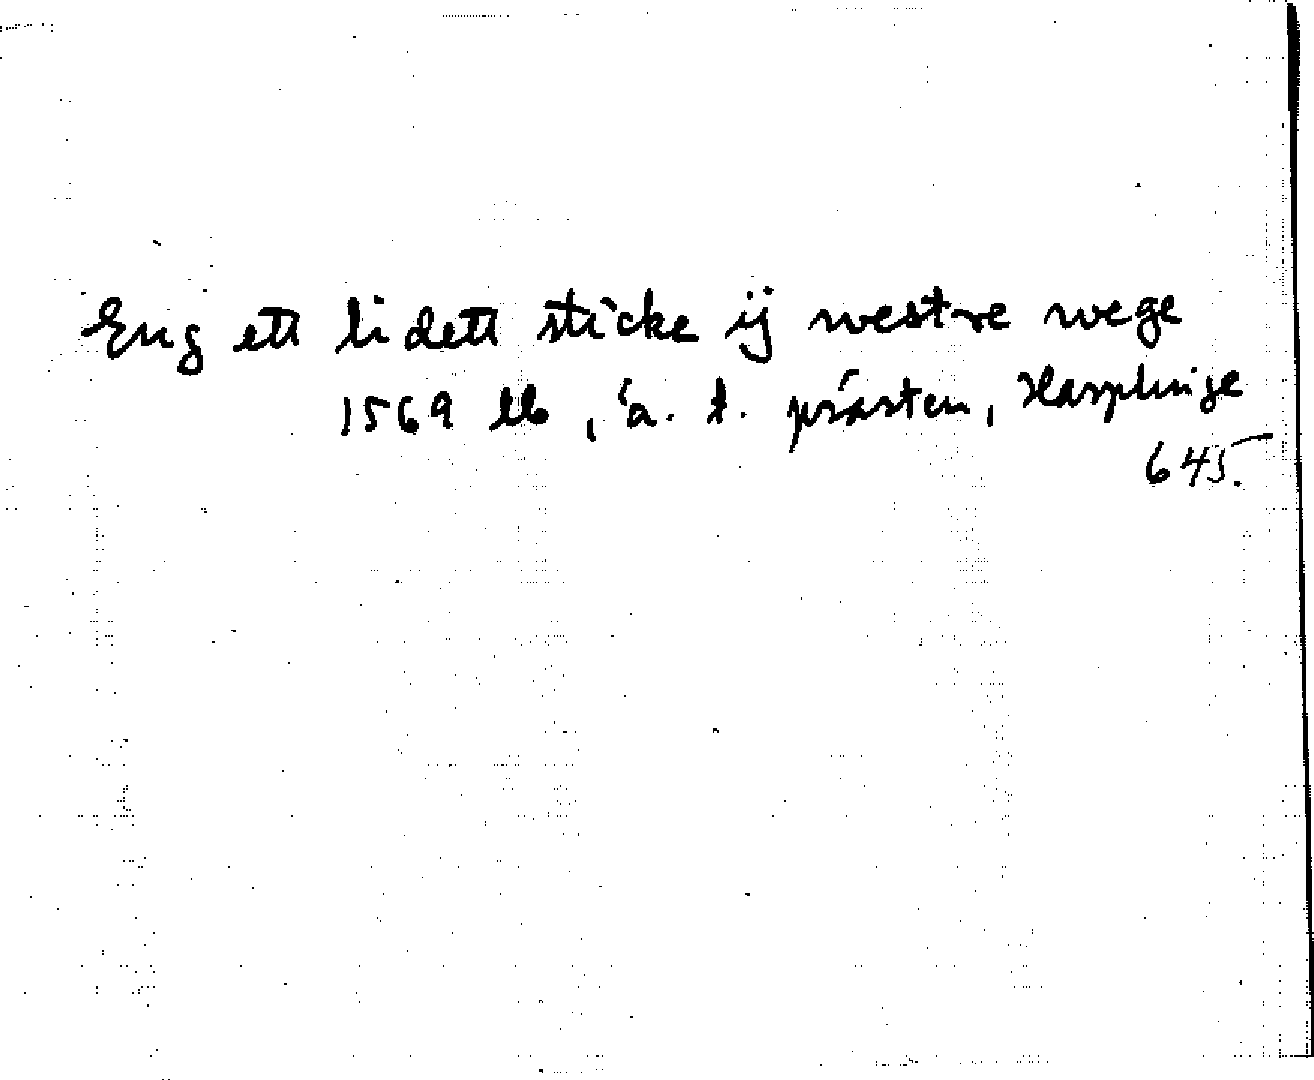 Eng ett lidett sticke ij westre wege
1569 lb, ä. t. prästen, Harplinge
645.